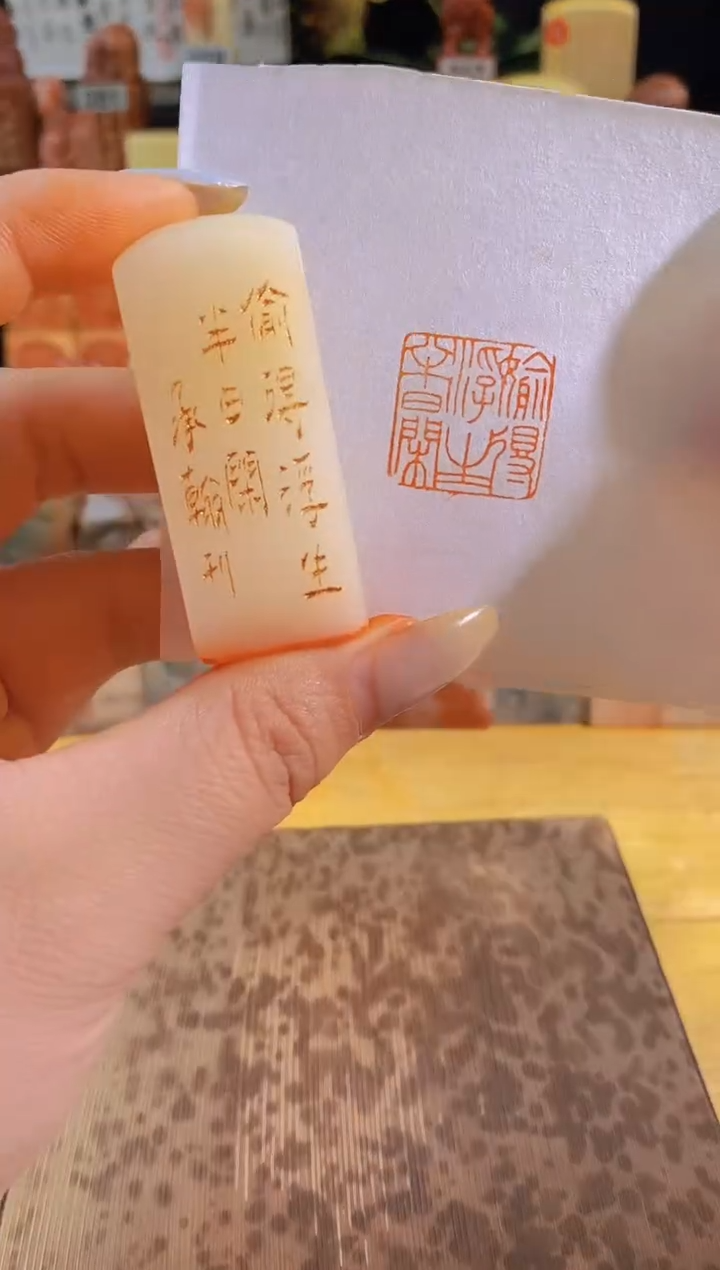 偷得浮生
半日閑
承翰刊
媮得
浮生
半日閑